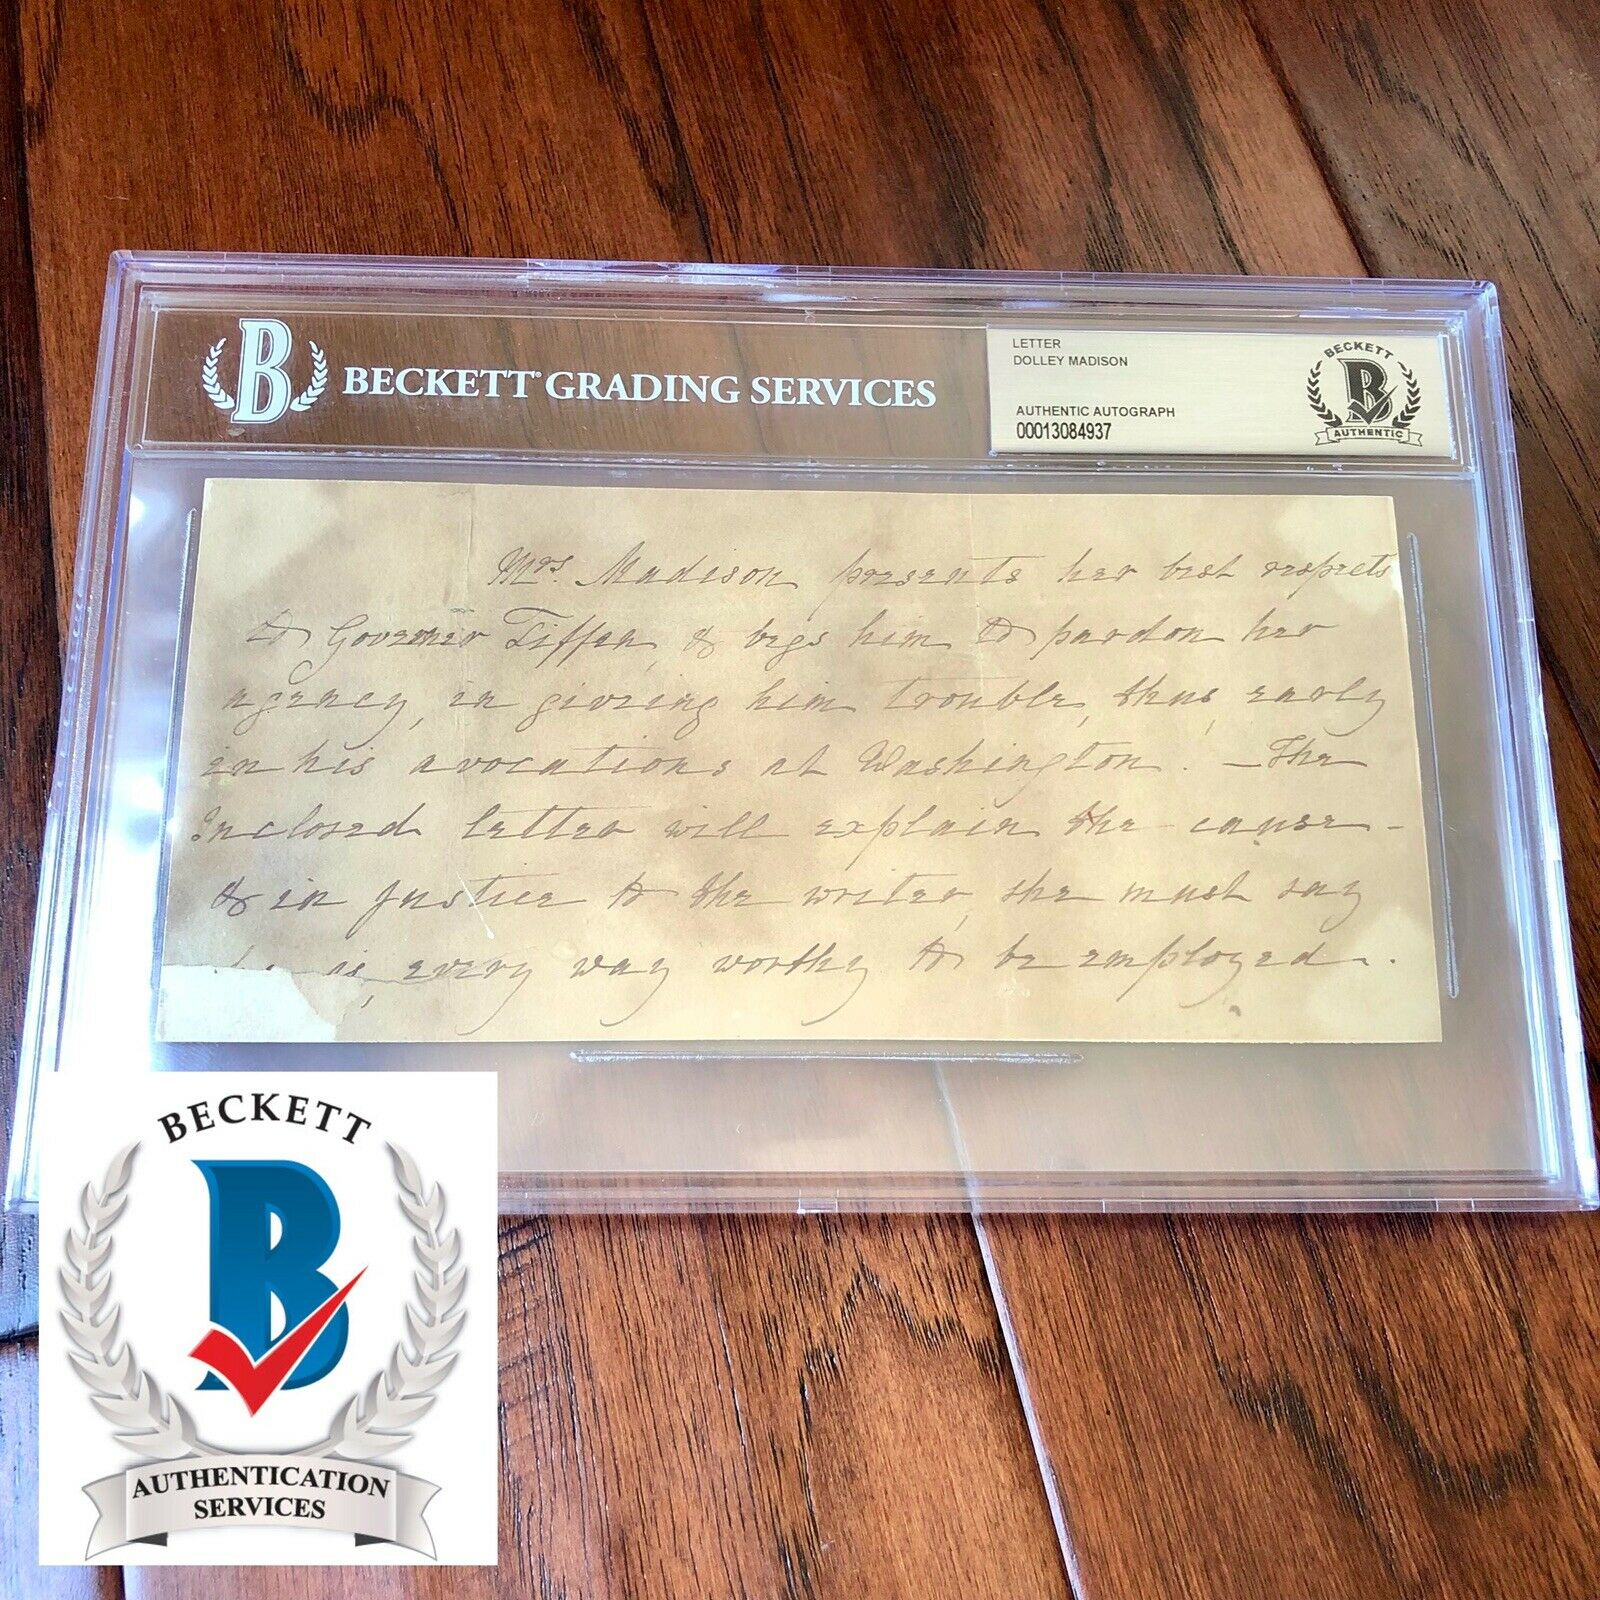 B BECKETT GRADING SERVICES
LETTER
DOLLEY MADISON
AUTHENTIC AUTOGRAPH
00013084937
BECKETT
B
AUTHENTIC
Mrs. Madison presents her best respects
to Governor Tiffin, & begs him to pardon her
agency, in giveing him trouble, thus, early
in his avocations at Washington. — The
Inclosed letter will explain the cause -
& in justice to the writer, she must say
is, every way worthy to be employed.
BECKETT
B
AUTHENTICATION
SERVICES